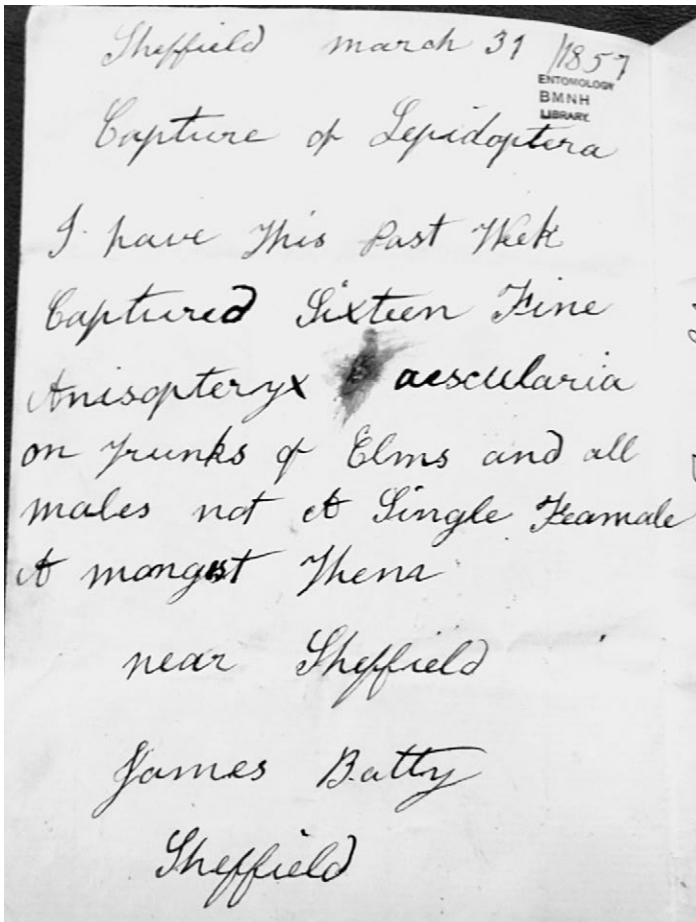 Sheffield march 31 /1857
ENTOMOLOGY
BMNH
LIBRARY
Capture of Lepidoptera
I have This Past Week
Captured Sixteen Fine
Anisopteryx aescularia
on Trunks of Elms and all
males not A Single Feamale
A mongst Them
near Sheffield
James Batty
Sheffield